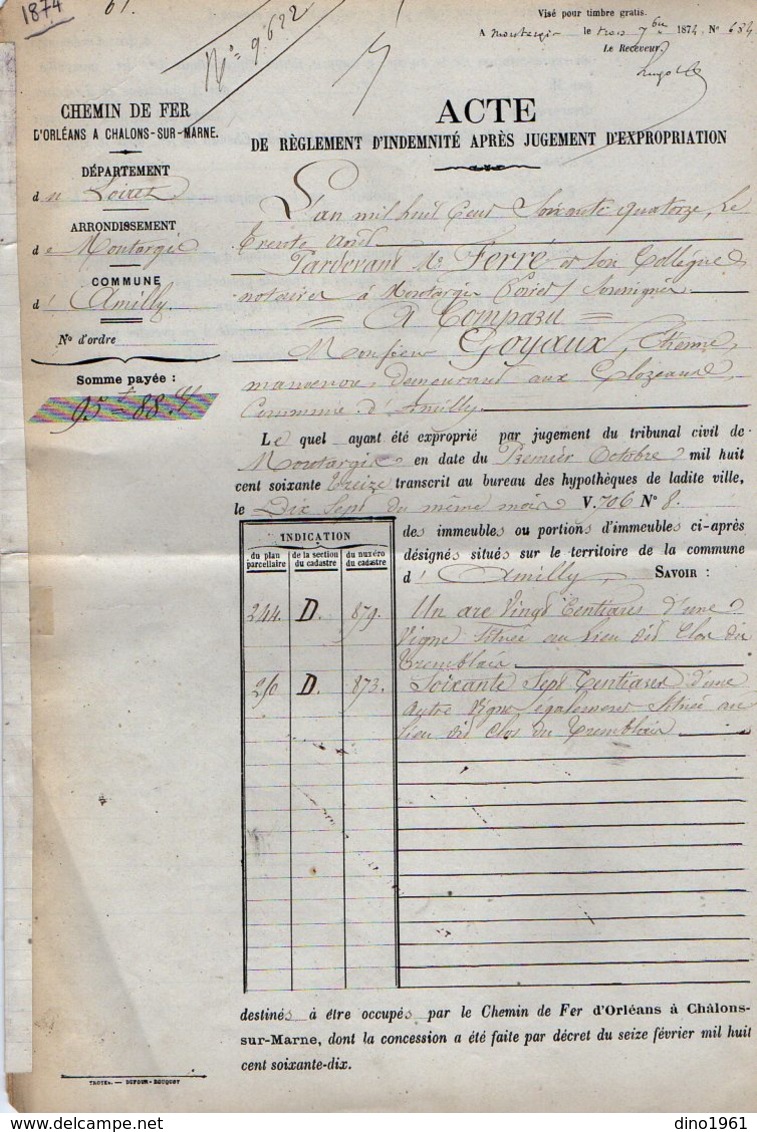 1874
61.
N° 9.622
Visé pour timbre gratis.
A Montargis le trois 7bre 1874 N° 684
Le Receveur,
CHEMIN DE FER
D'ORLÉANS A CHALONS-SUR-MARNE.
DÉPARTEMENT
du Loiret
ARRONDISSEMENT
de Montargis
COMMUNE
d' Amilly
N° d'ordre
Somme payée :
95 f 88 c
ACTE
DE RÈGLEMENT D'INDEMNITÉ APRÈS JUGEMENT D'EXPROPRIATION
L'an mil huit Cent Soixante quatorze, Le
Trente Août
Pardevant Me Ferré et Son Collègue
notaires à Montargis (Loiret) Soussignés
= A Comparu =
Monsieur GOYAUX, Etienne
manœuvre, demeurant aux Clozeaux,
Commune d'Amilly.
Le quel ayant été exproprié par jugement du tribunal civil de
Montargis en date du Premier Octobre mil huit
cent soixante treize transcrit au bureau des hypothèques de ladite ville,
le Dix Sept du même mois V. 706 N° 8.
INDICATION
du plan parcellaire
de la section du cadastre
du numéro du cadastre
des immeubles ou portions d'immeubles ci-après
désignés situés sur le territoire de la commune
d' Amilly, SAVOIR :
244. D. 879. Un are Vingt Centiares d'une
Vigne Située au lieu dit Clos du
Tremblais.
250 D. 873. Soixante Sept Centiares d'une
autre Vigne, également Située au
lieu dit Clos du Tremblais.
destinés à être occupés par le Chemin de Fer d'Orléans à Châlons-
sur-Marne, dont la concession a été faite par décret du seize février mil huit
cent soixante-dix.
TROYES. — DUFOUR-BOUQUOT
dino1961